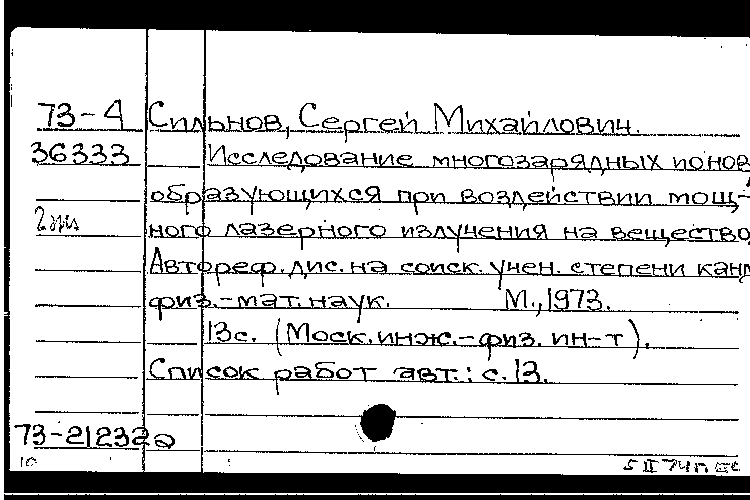 73-4 Сильнов, Сергей Михайлович.
36333 Исследование многозарядных ионов,
образующихся при воздействии мощ-
2 ного лазерного излучения на вещество
Автореф. дис. на соиск. учен. степени канд
физ.-мат. наук. М., 1973.
13с. (Моск. инж.-физ. ин-т).
Список работ авт.: с. 13.
73-21232
10 5 II 74